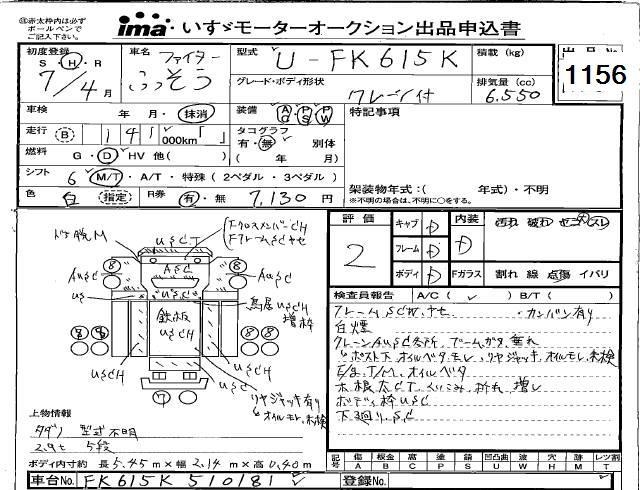 ㊟赤太枠内は必ず
ボールペンで
ご記入下さい。
ima いすゞモーターオークション出品申込書
初度登録
S・H・R
7/4月
車名 ファイター
ふそう
型式 U-FK615K
積載 (kg)
出品No
1156
グレード・ボディ形状
クレーン付
排気量 (cc)
6.550
車検 年・月・抹消
装備 AC PS PW
AG
特記事項
走行 B 141,000km「 」
タコグラフ
有・無 別体
( 年 月)
燃料 G・D・HV 他( )
シフト 6 M/T・A/T・特殊 (2ペダル・3ペダル)
架装物年式:( 年式)・不明
※不明の場合は、不明に○をする。
色 白 指定 R券 有・無 7,130円
評価
2
キャブ D
フレーム D
ボディ D
内装 D
Fガラス
汚れ 破れ コゲ スレ
割れ 線 点傷 イバリ
検査員報告 A/C( ✓ ) B/T( )
フレームSCW.ヤセ ・カンバン有り
白煙
クレーンAUSC各所、ブームガタ、垂れ
〃ポスト下オイルベタ、モレ、リヤジャッキ、オイルモレ、未検
E/g、T/M、オイルベタ
木根太CT、くいこみ、折れ、増し
ボディ枠USC
下廻り.SC
Fクロスメンバー CH
FフレームSCヤセ
USCT
AUSC
AUSC
AUSC
us
"USC"
鉄板
USCH
鳥居USCH
増枠
USCH
USCH
USC
リヤジャッキ有り
〃オイルモレ、未検
8
8
8
8
8
8
7
上物情報
タダノ 型式不明
2.9t 5段
ボディ内寸約 長5.45m×幅2.14m×高0.40m
記号 傷 板傷 腐 塗 錆 凹凸曲 波 穴 跡 レツ割
A B C P S U W H M T
車台No. FK615K 510181
登録No.